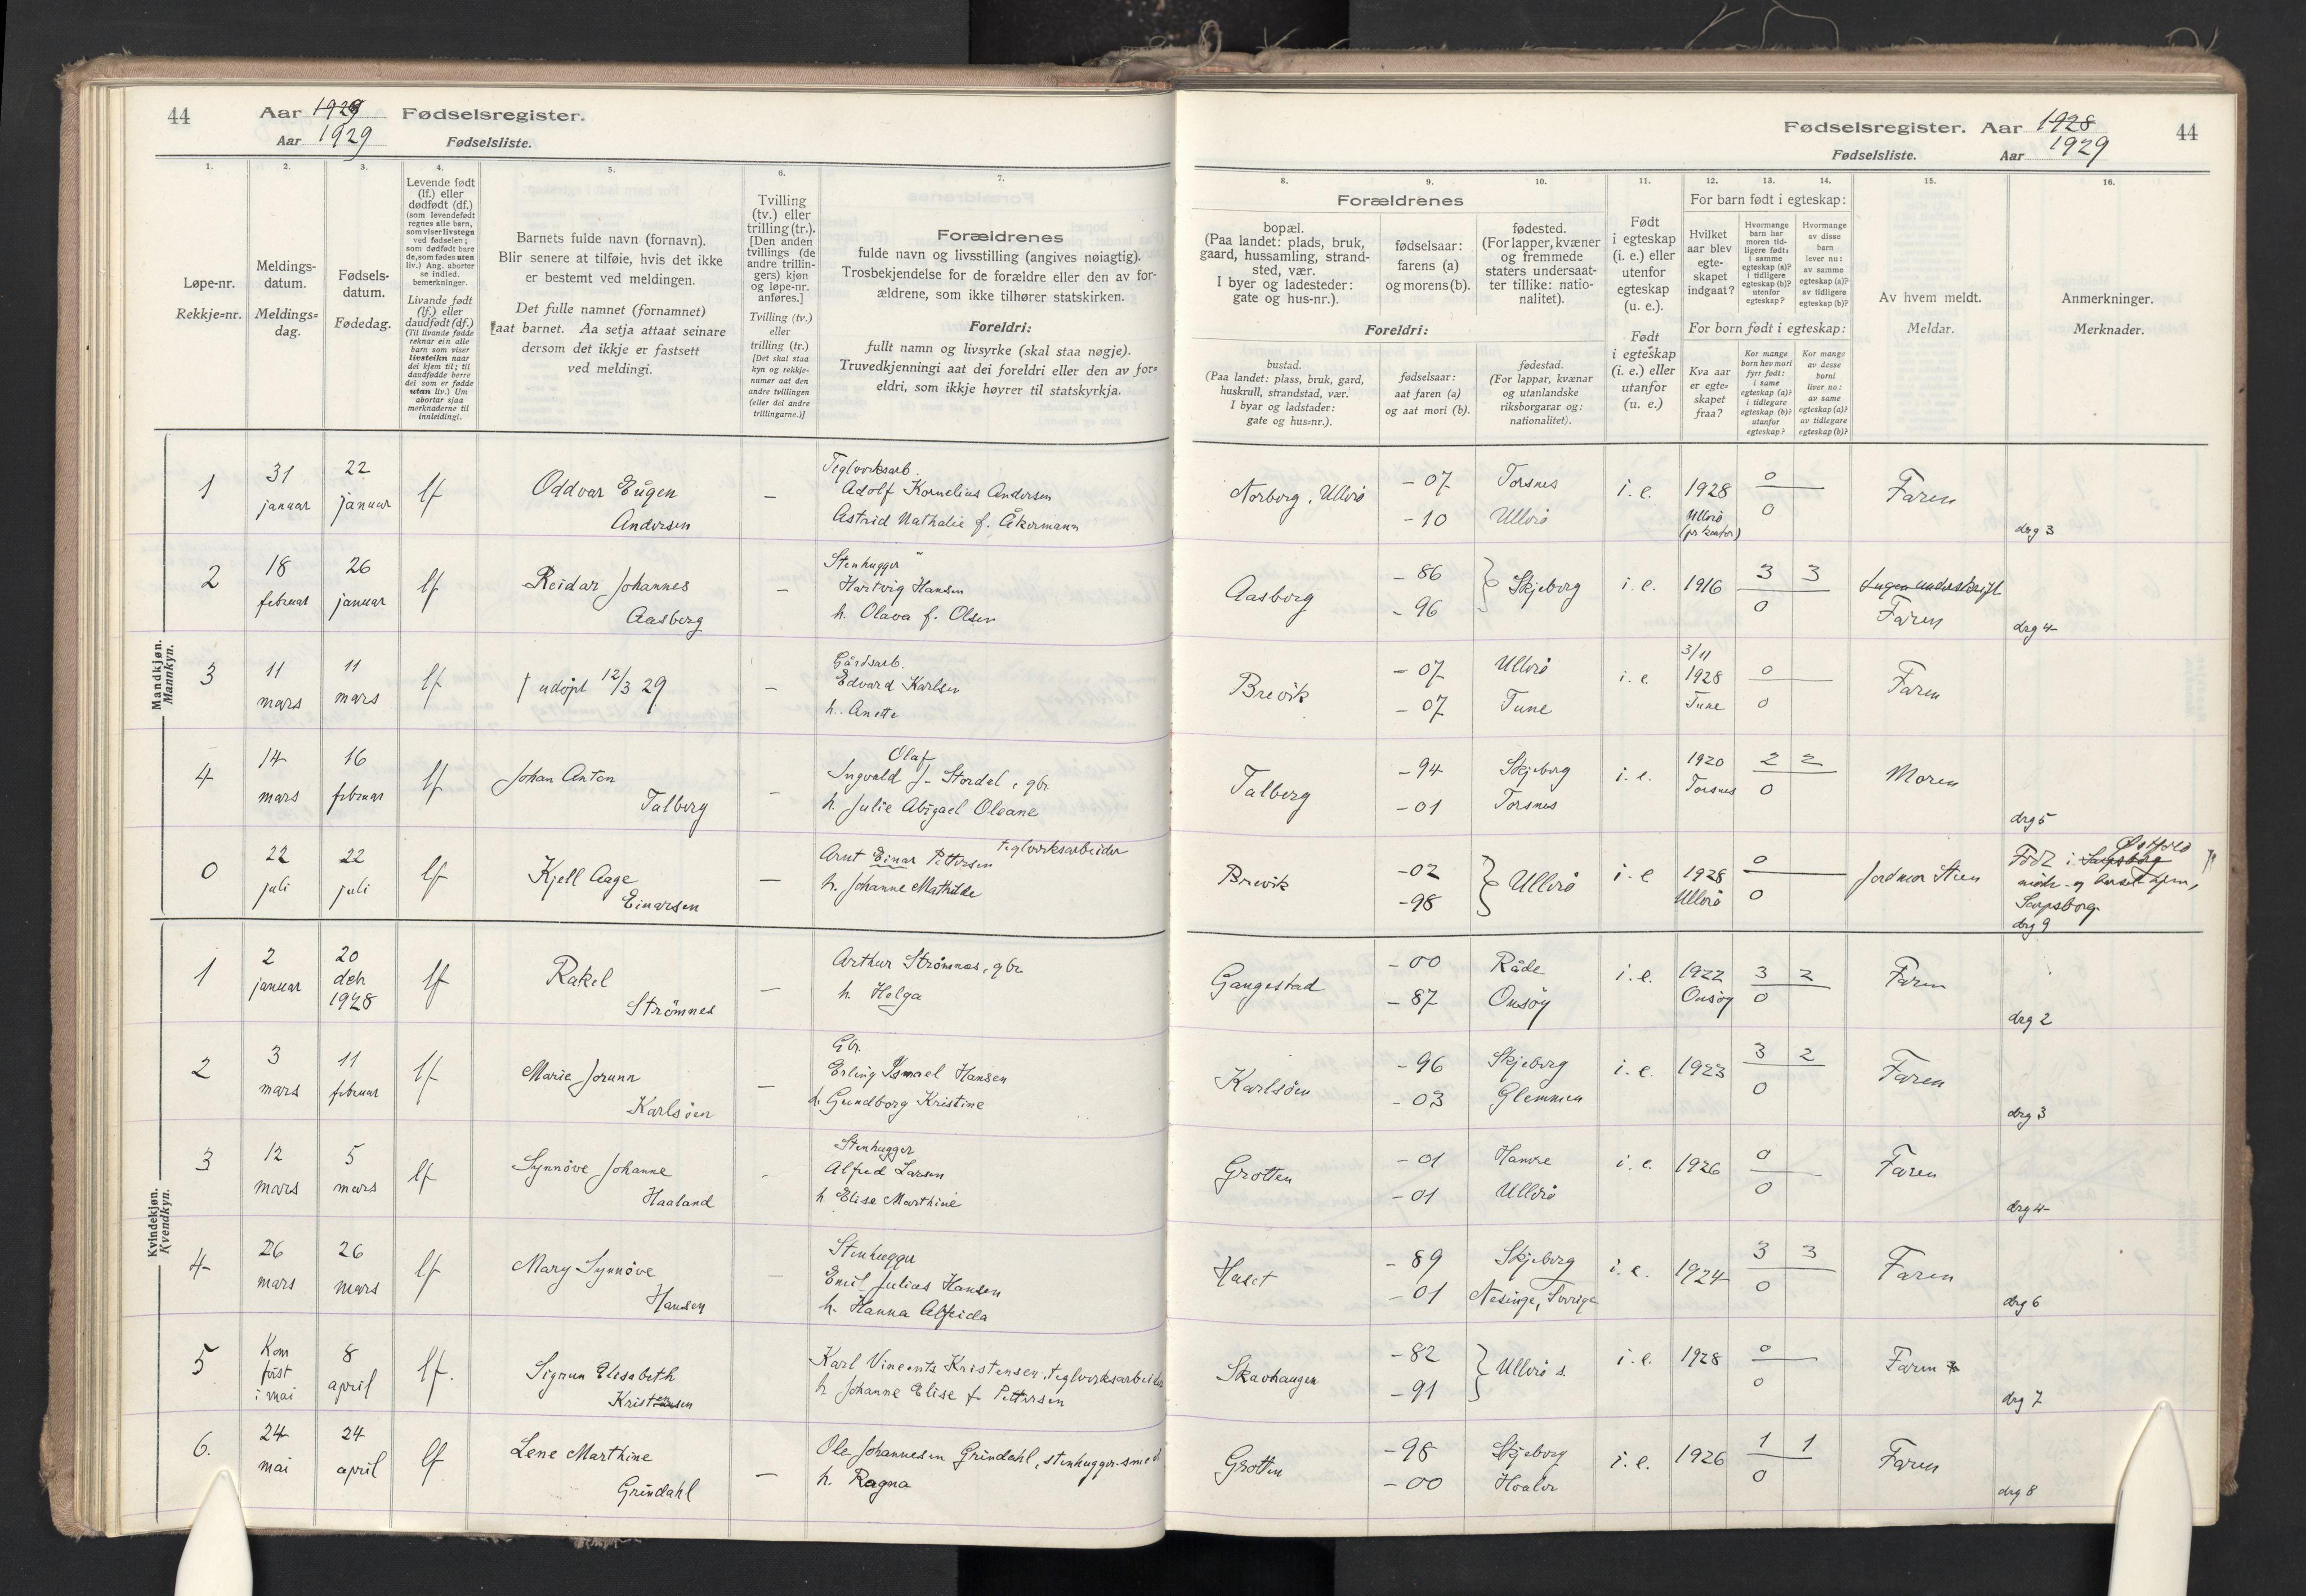 44
Aar 1928 Fødselsregister.
Aar 1929 Fødselsliste.
1.
2.
3.
4.
5.
6.
7.
Løpe-nr.
Rekkje=nr.
Meldings-
datum.
Meldings=
dag.
Fødsels-
datum.
Fødedag.
Levende født
(lf.) eller
dødfødt (df.)
(som levendefødt
regnes alle barn,
som viser livstegn
ved fødselen;
som dødfødt bare
de, som fødes uten
liv.) Ang. aborter
se indled.
bemerkninger.
Livande født
(lf.) eller
daudfødt (df.)
(Til livande fødde
reknar ein alle
barn som viser
livsteikn naar
dei kjem til; til
daudfødde berre
dei som er fødde
utan liv.) Um
abortar sjaa
merknaderne til
innleidingi.
Barnets fulde navn (fornavn).
Blir senere at tilføie, hvis det ikke
er bestemt ved meldingen.
Det fulle namnet (fornamnet)
aat barnet. Aa setja attaat seinare
dersom det ikkje er fastsett
ved meldingi.
Tvilling
(tv.) eller
trilling (tr.).
[Den anden
tvillings (de
andre trillin-
gers) kjøn
og løpe-nr.
anføres.]
Tvilling (tv.)
eller
trilling (tr.)
[Det skal staa
kyn og rekkje-
numer aat den
andre tvillingen
(eller dei andre
trillingarne.)]
Forældrenes
fulde navn og livsstilling (angives nøiagtig).
Trosbekjendelse for de forældre eller den av for-
ældrene, som ikke tilhører statskirken.
Foreldri:
fullt namn og livsyrke (skal staa nøgje).
Truvedkjenningi aat dei foreldri eller den av for=
eldri, som ikkje høyrer til statskyrkja.
Mandkjøn.
Mannkyn.
1
31
januar
22
januar
lf
Oddvar Eugen
Andersen
Teglverksarb.
Adolf Kornelius Andersen
Astrid Nathalie f. Åkermann
2
18
februar
26
januar
lf
Reidar Johannes
Aasberg
Stenhugger
Hartvig Hansen
h. Olava f. Olsen
3
11
mars
11
mars
lf
† udøpt 12/3 29
Gårdsarb.
Edvard Karlsen
h. Anette
4
14
mars
16
februar
lf
Johan Anton
Talberg
Olaf
Ingvald J. Stordal, gbr.
h. Julie Abigael Oleane
0
22
juli
22
juli
lf
Kjell Aage
Einarsen
teglverksarbeider
Arnt Einar Pettersen
h. Johanne Mathilde
Kvindekjøn.
Kvendkyn.
1
2
januar
20
des
1928
lf
Rakel
Strømnes
Arthur Strømnes, gbr.
h. Helga
2
3
mars
11
februar
lf
Marie Jorunn
Karlsøen
Gbr.
Erling Ismael Hansen
h. Gundborg Kristine
3
12
mars
5
mars
lf
Synnøve Johanne
Haaland
Stenhugger
Alfred Larsen
h Elise Marthine
4
26
mars
26
mars
lf
Mary Synnøve
Hansen
Stenhugger
Emil Julius Hansen
h. Hanna Alfeida
5
Kom
først
i mai
8
april
lf.
Sigrun Elisabeth
Kristensen
Karl Vincents Kristensen, teglverksarbeider
h Johanne Elise f. Pettersen
6.
24
mai
24
april
lf
Lene Marthine
Grindahl
Ole Johannesen Grindahl, stenhugger-smed
h. Ragna
Fødselsregister. Aar 1928
44
Fødselsliste. Aar 1929
8.
9.
10.
11.
12.
13.
14.
15.
16.
Forældrenes
bopæl.
(Paa landet: plads, bruk,
gaard, hussamling, strand-
sted, vær.
I byer og ladesteder:
gate og hus-nr.).
fødselsaar:
farens (a)
og morens (b).
fødested.
(For lapper, kvæner
og fremmede
staters undersaat-
ter tillike: natio-
nalitet).
Foreldri:
bustad.
(Paa landet: plass, bruk, gard,
huskrull, strandstad, vær.
I byar og ladstader:
gate og hus=nr.).
fødselsaar:
aat faren (a)
og aat mori (b).
fødestad.
(For lappar, kvænar
og utanlandske
riksborgarar og:
nationalitet).
Født
i egteskap
(i. e.) eller
utenfor
egteskap
(u. e.).
Født
i egteskap
(i. e.) eller
utanfor
(u. e.)
For barn født i egteskap:
Hvilket
aar blev
egte-
skapet
indgaat?
Hvormange
barn har
moren tid-
ligere født:
i samme
egteskap (a)?
i tidligere
egteskap (b)?
utenfor
egteskap?
Hvormange
av disse
barn
lever nu:
av samme
egteskap (a)?
av tidligere
egteskap (b)?
For born født i egteskap:
Kva aar
er egte=
skapet
fraa?
Kor mange
born hev mori
fyrr født:
i same
egteskap (a)?
i tidlegare
egteskap (b)?
utanfor
egteskap?
Kor mange
av desse
borni
liver no:
av same
egteskap (a)?
av tidlegare
egteskap (b)?
Av hvem meldt.
Meldar.
Anmerkninger.
Merknader.
Norberg, Ullerø
- 07
- 10
Torsnes
Ullerø
i. e.
1928
Ullerø
(pr kontor)
0
0
Faren
drg 3
Aasberg
- 86
- 96
Skjeberg
i. e.
1916
3 3
0
Ingen underskrift
Faren
drg 4
Brevik
- 07
- 07
Ullerø
Tune
i. e
3/11
1928
Tune
0
0
Faren
Talberg
- 94
- 01
Skjeberg
Torsnes
i. e.
1920
Torsnes
2 2
0
Moren
drg 5
Brevik
- 02
- 98
Ullerø
i. e
1928
Ullerø
0
0
Jordmor Steen
Østfold
Født i Sarpsborg
mødre- og barselhjem,
Sarpsborg
drg 9
Gangestad
- 00
- 87
Råde
Onsøy
i. e.
1922
Onsøy
3 2
0
Faren
drg 2
Karlsøen
- 96
- 03
Skjeberg
Glemmen
i. e.
1923
3 2
0
Faren
drg 3
Grotten
- 01
- 01
Hamre
Ullerø
i. e.
1926
0
0
Faren
drg 4
Huset
- 89
- 01
Skjeberg
Nesinge, Sverige
i. e.
1924
3 3
0
Faren
drg 6
Skavhaugen
- 82
- 91
Ullerø s.
i. e.
1928
0
0
Faren
drg 7
Grotten
- 98
- 00
Skjeberg
Hvaler
i. e.
1926
1 1
0
Faren
drg 8